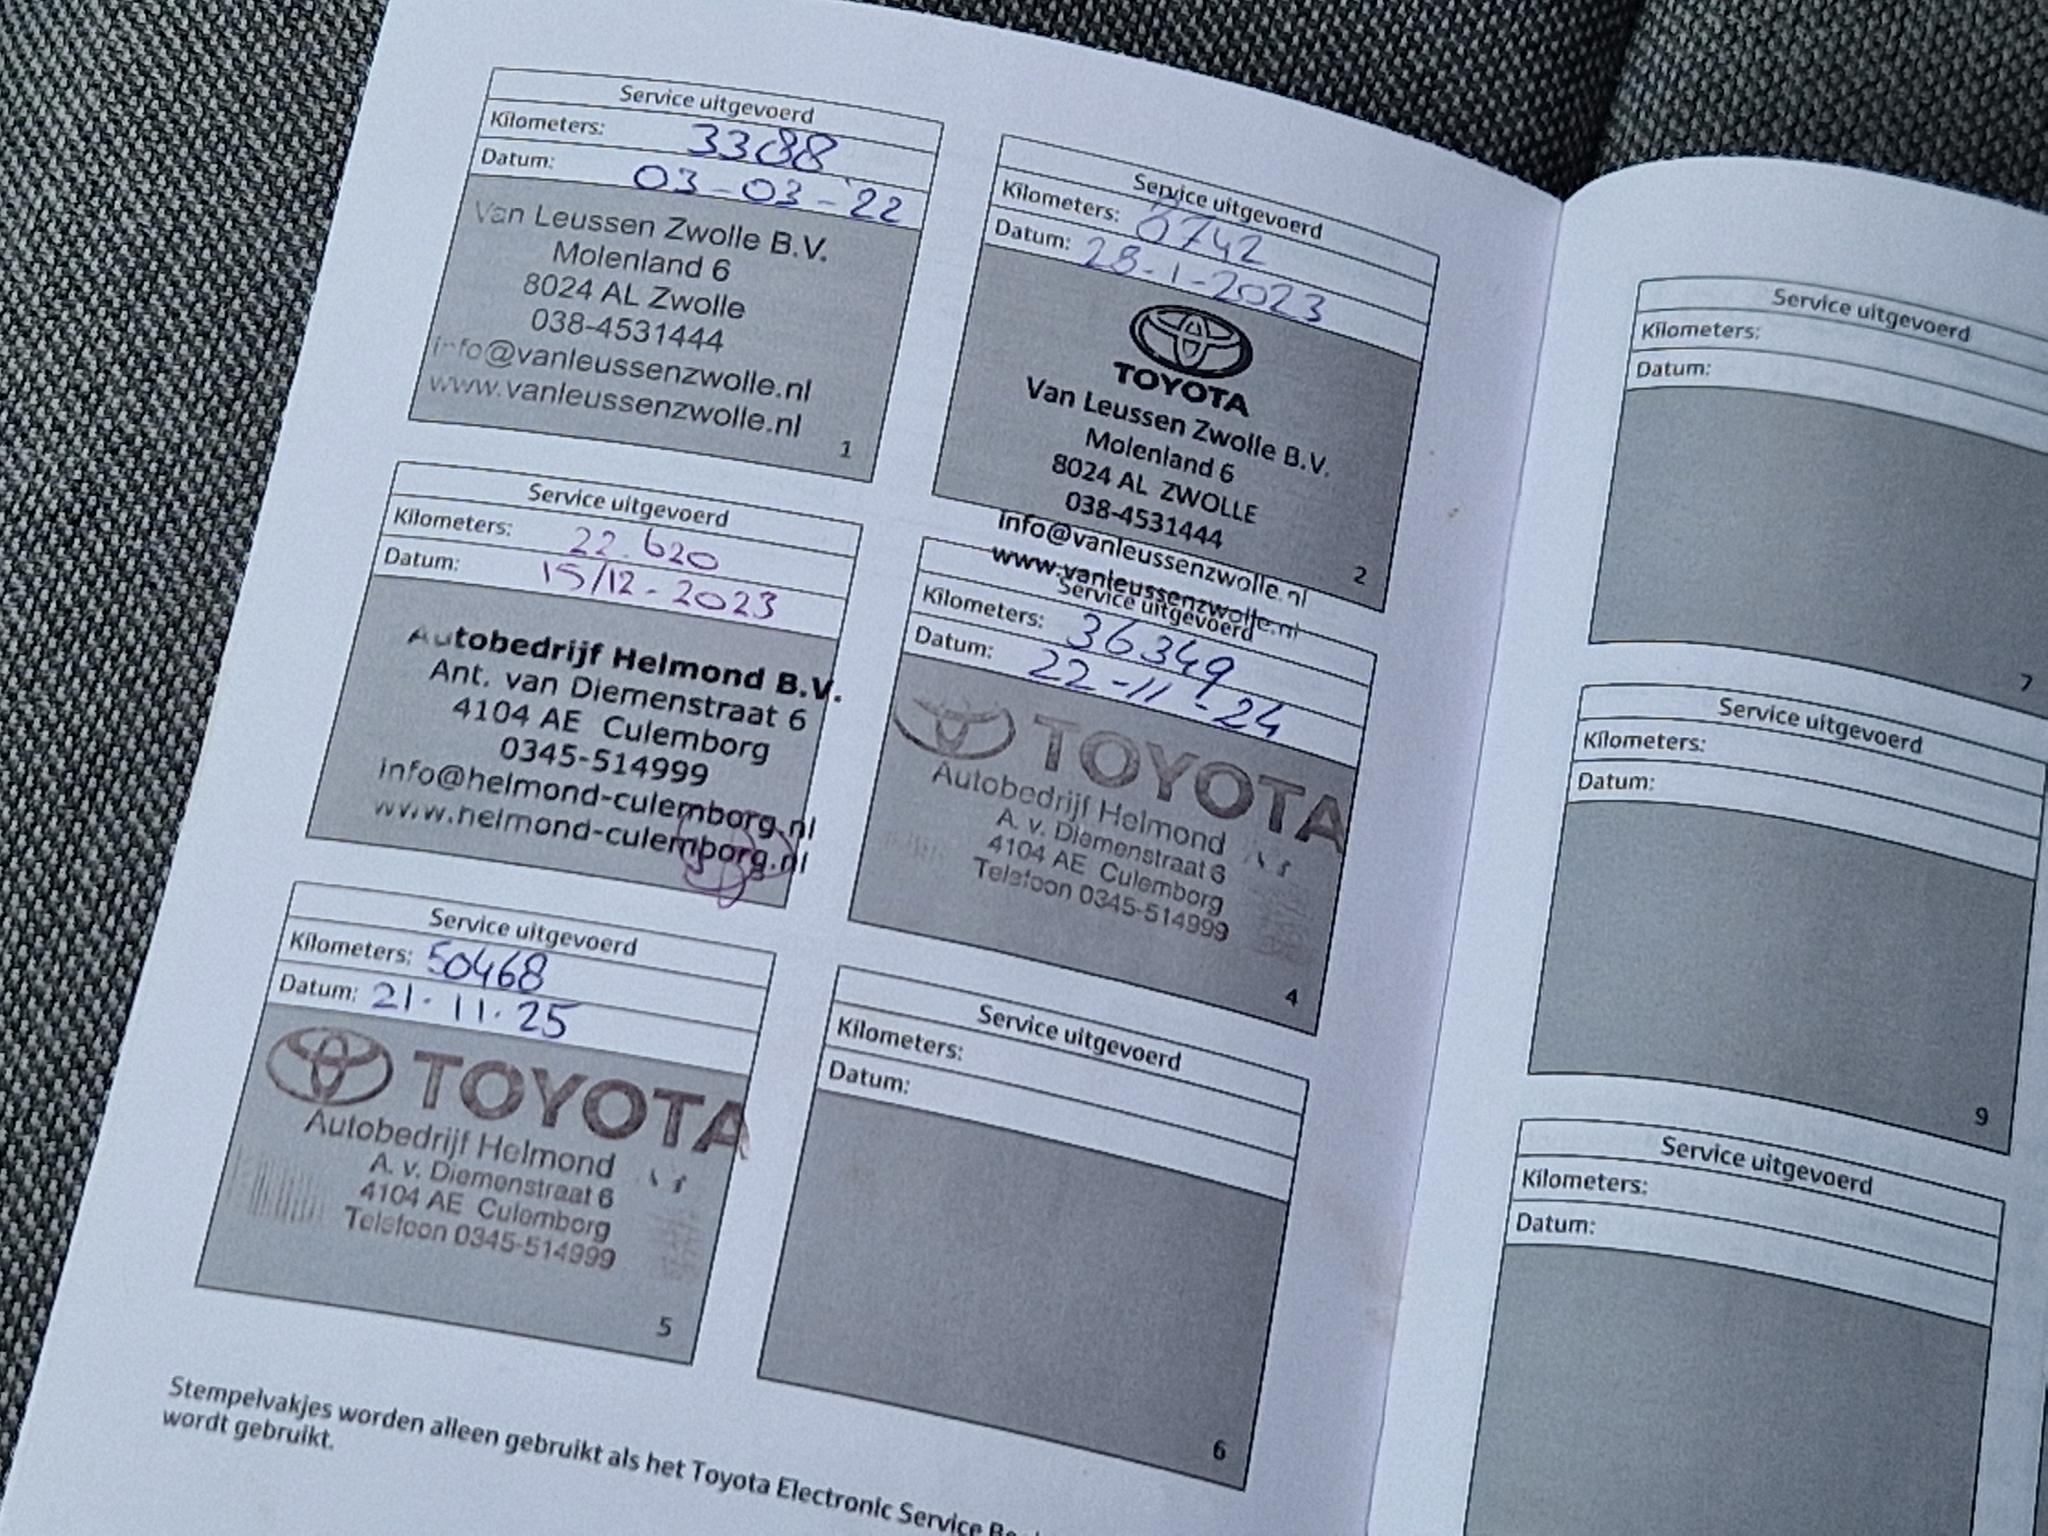 Service uitgevoerd
Kilometers: 3388
Datum: 03-03-'22
Van Leussen Zwolle B.V.
Molenland 6
8024 AL Zwolle
038-4531444
info@vanleussenzwolle.nl
www.vanleussenzwolle.nl
1
Service uitgevoerd
Kilometers: 8742
Datum: 28-1-2023
TOYOTA
Van Leussen Zwolle B.V.
Molenland 6
8024 AL ZWOLLE
038-4531444
info@vanleussenzwolle.nl
www.vanleussenzwolle.nl
2
Service uitgevoerd
Kilometers: 22.620
Datum: 15/12-2023
Autobedrijf Helmond B.V.
Ant. van Diemenstraat 6
4104 AE Culemborg
0345-514999
info@helmond-culemborg.nl
www.helmond-culemborg.nl
Service uitgevoerd
Kilometers: 36349
Datum: 22-11-24
TOYOTA
Autobedrijf Helmond
A. v. Diemenstraat 6
4104 AE Culemborg
Telefoon 0345-514999
4
Service uitgevoerd
Kilometers: 50468
Datum: 21.11.25
TOYOTA
Autobedrijf Helmond
A. v. Diemenstraat 6
4104 AE Culemborg
Telefoon 0345-514999
5
Service uitgevoerd
Kilometers:
Datum:
6
Stempelvakjes worden alleen gebruikt als het Toyota Electronic Service
wordt gebruikt.
Service uitgevoerd
Kilometers:
Datum:
7
Service uitgevoerd
Kilometers:
Datum:
9
Service uitgevoerd
Kilometers:
Datum: